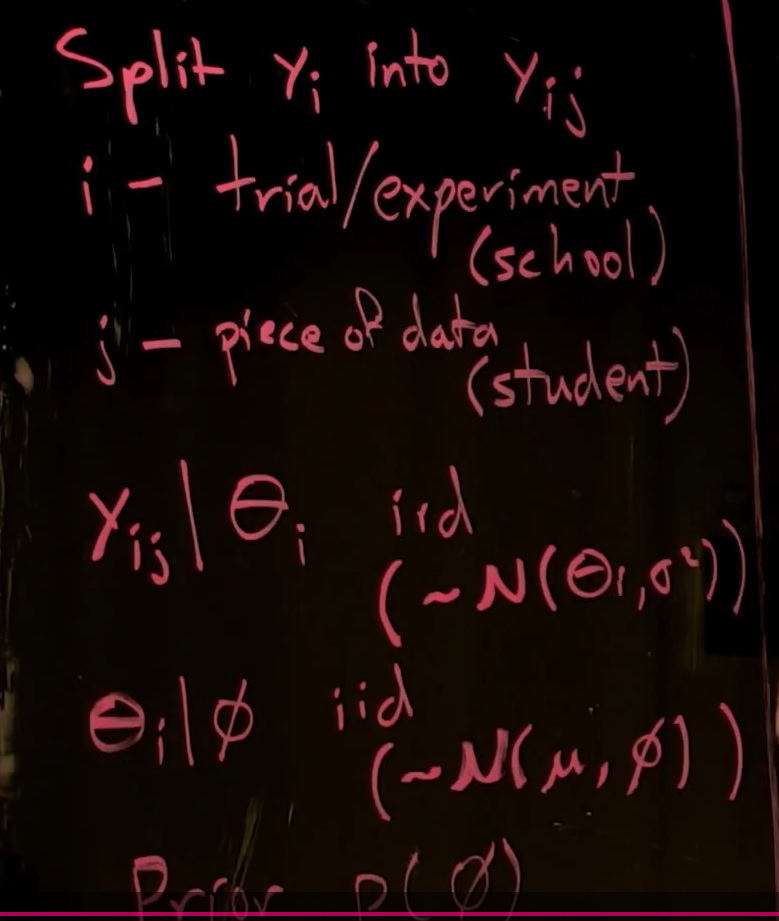 Split Y_i into Y_ij
i - trial/experiment
(school)
j - piece of data
(student)
Y_ij | θ_i iid
(~N(θ_i, σ²))
θ_i | φ iid
(~N(μ, φ))
Prior p(φ)